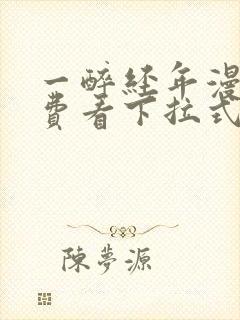 一醉經年漫
費看下拉式
陳夢源